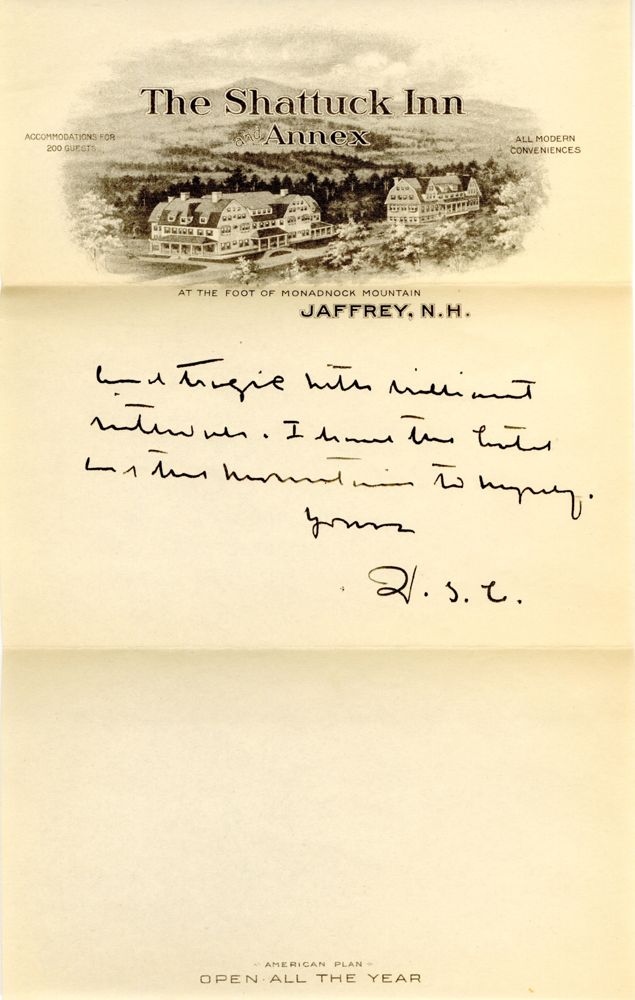 The Shattuck Inn
and Annex
ACCOMMODATIONS FOR
200 GUESTS
ALL MODERN
CONVENIENCES
AT THE FOOT OF MONADNOCK MOUNTAIN
JAFFREY, N.H.
and tragic with brilliant
intervals. I have the hotel
and the mountain to myself.
Yours
W. S. C.
AMERICAN PLAN
OPEN·ALL THE YEAR